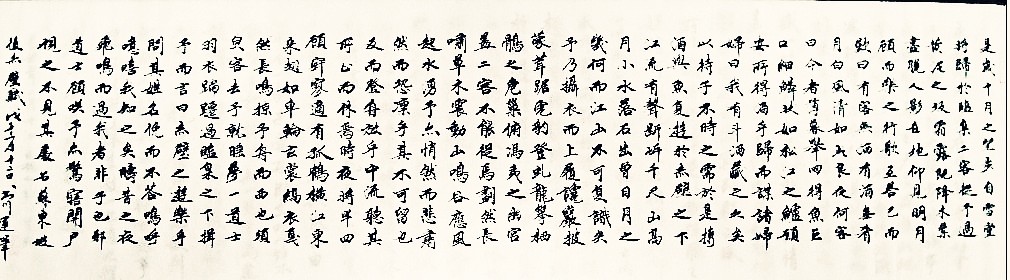 是歲十月之望步自雪堂
將歸於臨臯二客從予過
黃泥之坂霜露既降木葉
盡脫人影在地仰見明月
顧而樂之行歌互答已而
歎曰有客無酒有酒無肴
月白風清如此良夜何客
曰今者薄暮舉網得魚巨
口細鱗狀如松江之鱸顧
安所得酒乎歸而謀諸婦
婦曰我有斗酒藏之久矣
以待子不時之需於是攜
酒與魚復遊於赤壁之下
江流有聲斷岸千尺山高
月小水落石出曾日月之
幾何而江山不可復識矣
予乃攝衣而上履巉巖披
蒙茸踞虎豹登虬龍攀栖
鶻之危巢俯馮夷之幽宮
蓋二客不能從焉劃然長
嘯草木震動山鳴谷應風
起水涌予亦悄然而悲肅
然而恐凜乎其不可留也
反而登舟放乎中流聽其
所止而休焉時夜將半四
顧寂寥適有孤鶴橫江東
來翅如車輪玄裳縞衣戛
然長鳴掠予舟而西也須
臾客去予就睡夢一道士
羽衣蹁躚過臨臯之下揖
予而言曰赤壁之遊樂乎
問其姓名俛而不答嗚呼
噫嘻我知之矣疇昔之夜
飛鳴而過我者非子也耶
道士顧笑予亦驚寤開戶
視之不見其處右蘇東坡
後赤壁賦